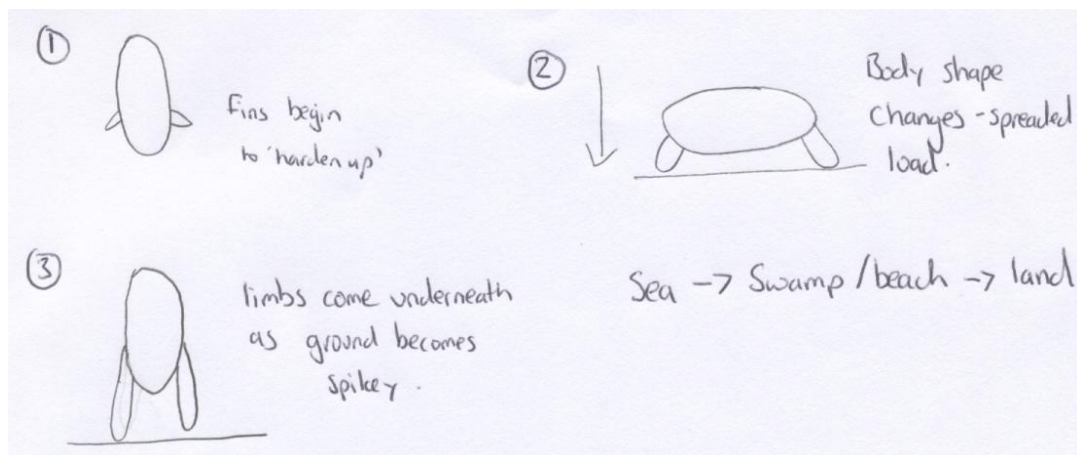 ①
fins begin
to 'harden up'
②
Body shape
changes - spreaded
load.
③
limbs come underneath
as ground becomes
spikey.
Sea → Swamp / beach → land